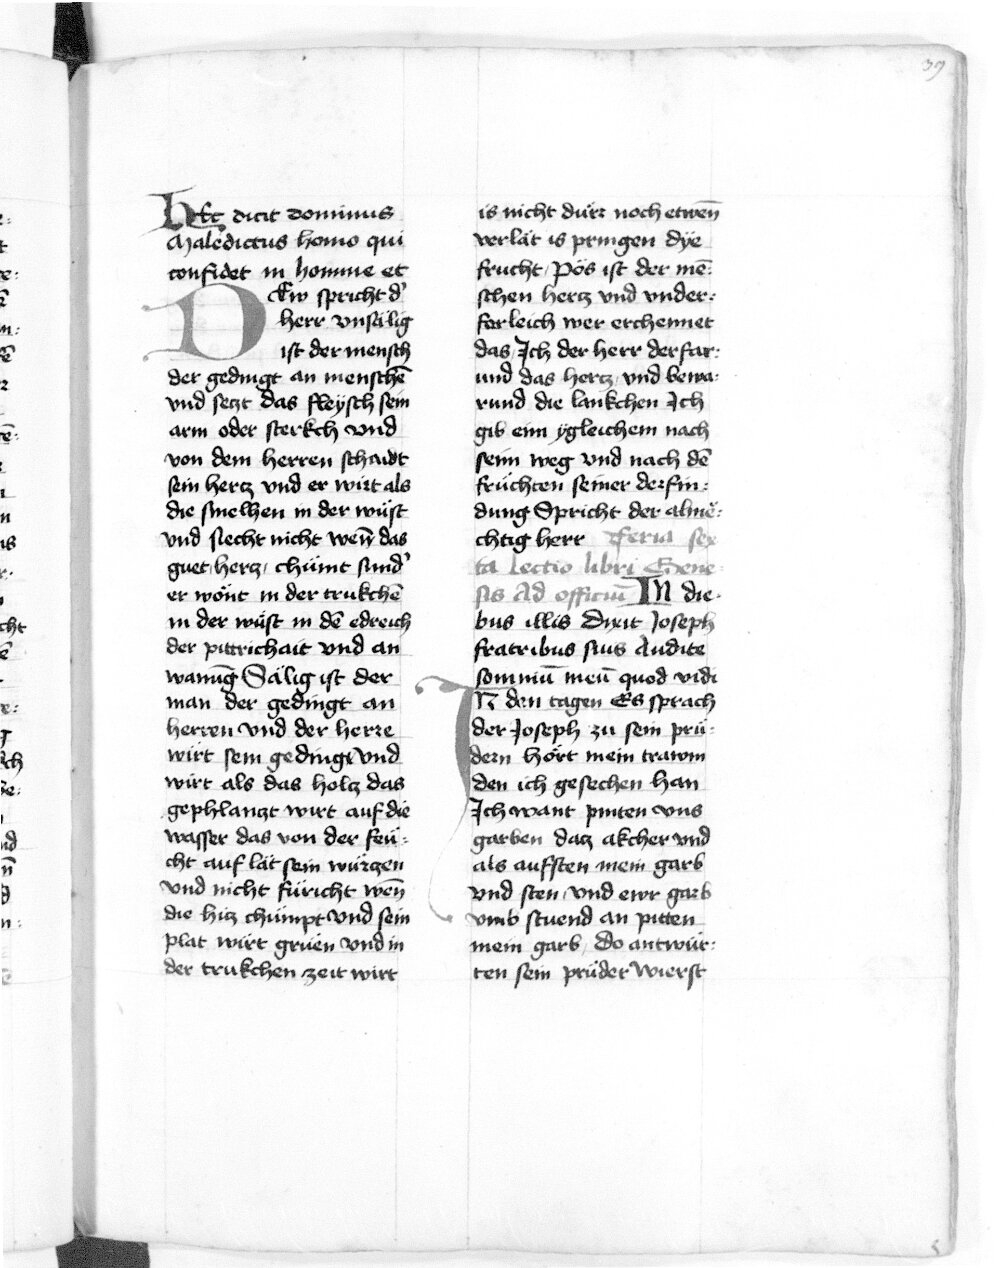 39
HEc dicit dominus
Maledictus homo qui
confidet in homine et
DEw spricht d'
herr vnsälig
ist der mensch
der gedingt an menschē
vnd seczt das fleysch sein
arm oder sterkch vnd
von dem herren schaidt
sein hercz vnd er wirt als
die smelhen in der wüst
vnd siecht nicht weñ das
guet hercz chümt sund'
er wont in der trukchē
in der wüst in dē edreich
der pittrichait vnd an
wanūg Sälig ist der
man der gedingt an
herren vnd der herre
wirt sein gedingt vnd
wirt als das holcz das
gephlanczt wirt auf die
wasser das von der feü-
cht auf lät sein würczen
vnd nicht füricht weñ
die hicz chümpt vnd sein
plat wirt grüen vnd in
der trukchen zeit wirt
is nicht dürr noch etweñ
verlät is pringen dye
frucht Pös ist der mē-
schen hercz vnd vnder-
forleich wer erchennet
das Ich der herr derfar-
und das hercz vnd bewa-
rund die lankchen Ich
gib eim ygleichem nach
seim weg vnd nach dē
früchten seiner derfin-
dung Spricht der almē-
chtig herr Feria sex
ta Lectio libri Gene-
sis Ad officiū IN die-
bus illis Dixit Joseph
fratribus suis Audite
somniū meū quod vidi
IN den tagen Es sprach
der Joseph zu sein prü-
dern hört mein trawm
den ich gesechen han
Ich want pinten vns
garben dacz akcher vnd
als aufsten mein garb
vnd sten vnd ewr garb
vmb stuend an pitten
mein garb Do antwür-
ten sein prüder Wierst